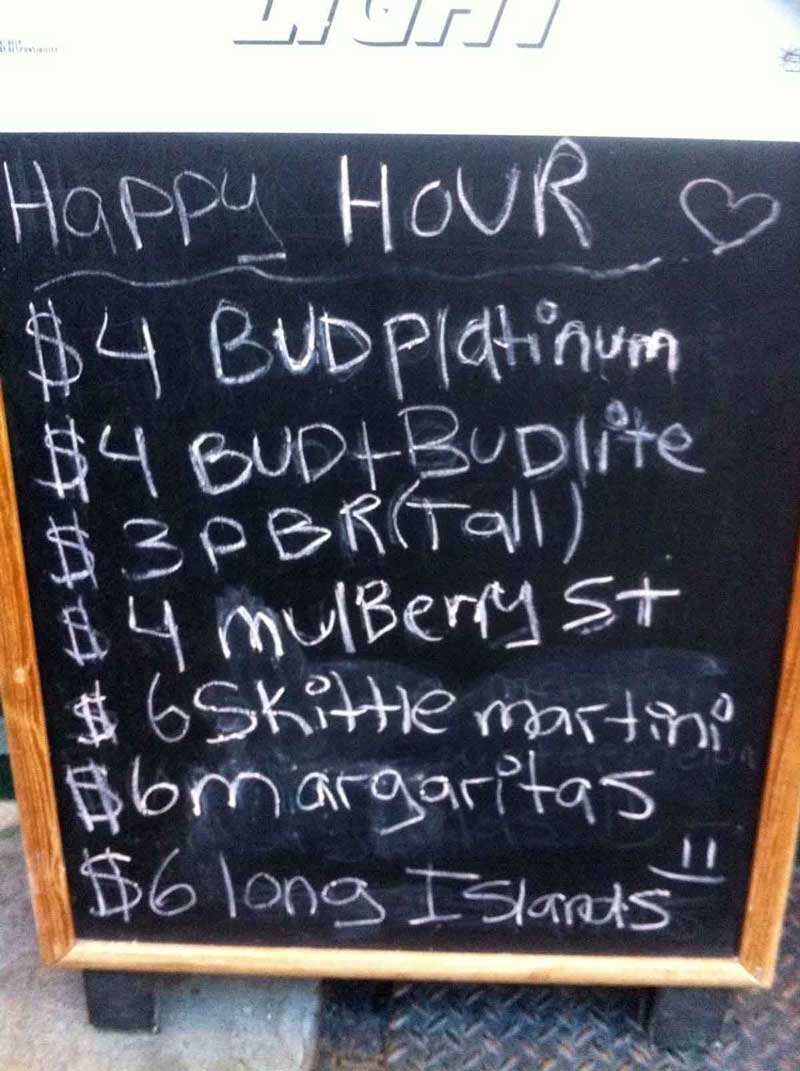 LIGHT
Happy HOUR
$4 BUD Platinum
$4 BUD + BUDlite
$3 PBR (Tall)
$4 mulBerry St
$6 Skittle martini
$6 margaritas
$6 long Islands